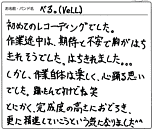 お名前・バンド名 べる。(VeLL)
初めてのレコーディングでした。
作業途中は、期待と不安で胸がはち
きれそうでした。はちきれました。。。
しかし、作業自体は楽しく、心躍る思い
でした。踊らんでけれども笑
とにかく、完成度の高さにおどろき、
更に精進していこうという気になりました^^